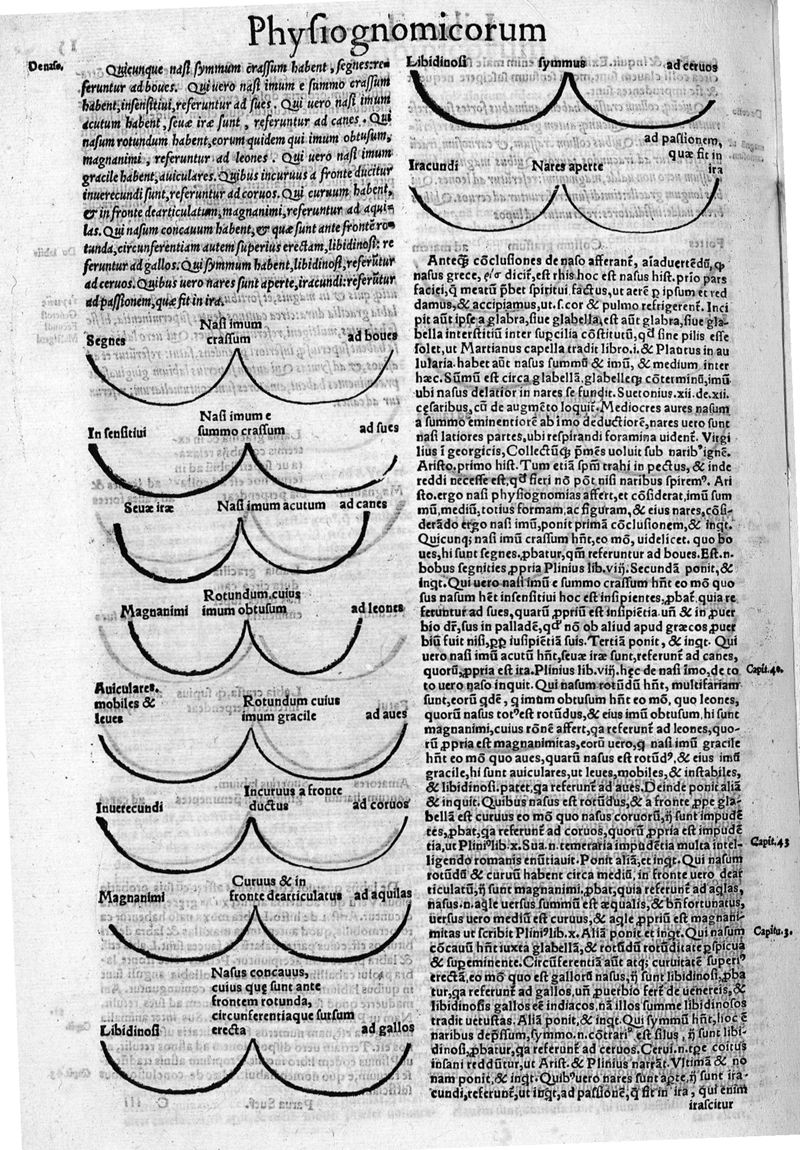 Physiognomicorum
De naso.
Quicunque nasi symmum crassum habent, segnes: re
feruntur ad boues. Qui uero nasi imum e summo crassum
habent, insensitiui, referuntur ad sues. Qui uero nasi imum
acutum habent, seuæ iræ sunt, referuntur ad canes. Qui
nasum rotundum habent, eorum quidem qui imum obtusum,
magnanimi, referuntur ad leones. Qui uero nasi imum
gracile habent, auiculares. Quibus incuruus a fronte ducitur
inuerecundi sunt, referuntur ad coruos. Qui curuum habent,
& in fronte dearticulatum, magnanimi, referuntur ad aqui
las. Qui nasum concauum habent, & quæ sunt ante frontē ro
tunda, circunferentiam autem superius erectam, libidinosi: re
feruntur ad gallos. Qui symmum habent, libidinosi, referūtur
ad ceruos. Quibus uero nares sunt aperte, iracundi: referūtur
ad passionem, quæ fit in ira.
Segnes
Nasi imum
crassum
ad boues
In sensitiui
Nasi imum e
summo crassum
ad sues
Seuæ iræ
Nasi imum acutum
ad canes
Magnanimi
Rotundum. cuius
imum obtusum
ad leones
Auiculares.
mobiles &
leues
Rotundum cuius
imum gracile
ad aues
Inuerecundi
Incuruus a fronte
ductus
ad coruos
Magnanimi
Curuus & in
fronte dearticulatus
ad aquilas
Libidinosi
Nasus concauus,
cuius quę sunt ante
frontem rotunda,
circunferentiaque sursum
erecta
ad gallos
Libidinosi
symmus
ad ceruos
Iracundi
Nares aperte
ad passionem,
quæ fit in
ira
Anteq̃ cōclusiones de naso afferant̃, aiaduertēdū, q̃
nasus grece, dicit̃, est rhis hoc est nasus hist. prio pars
faciei, q̃ meatū p̃bet spiritui factus, ut aerē p ipsum et red
damus, & accipiamus, ut. s. cor & pulmo refrigerent̃. Inci
pit aūt ipse a glabra, siue glabella, est aūt glabra, siue gla-
bella interstitiū inter supcilia cōstitutū, qđ sine pilis esse
solet, ut Martianus capella tradit libro. i. & Plautus in au
lularia. habet aūt nasus summū & imū, & medium inter
hæc. Sūmū est circa glabellā, glabelleq; cōterminū, imū
ubi nasus delatior in nares se fundit. Suetonius. xii. de. xii.
cęsaribus, cū de augmēto loquit̃. Mediocres aures nasum
a summo eminentiorē ab imo deductiorē, nares uero sunt
nasi latiores partes, ubi respirandi foramina uident̃. Virgi
lius ī georgicis, Collectūq; p̃mēs uoluit sub narib⁹ ignē.
Aristo. primo hist. Tum etiā spm̄ trahi in pectus, & inde
reddi necesse est, qđ fieri nō pōt, nisi naribus spirem⁹. Ari
sto. ergo nasi physiognomias affert, et cōsiderat, imū sum
mū, mediū, totius formam, ac figuram, & eius nares, cōsi-
derādo ergo nasi imū, ponit primā cōclusionem, & inq̃t.
Quicunq; nasi imū crassum hn̄t, eo mō, uidelicet. quo bo
ues, hi sunt segnes. ꝓbatur, qm̄ referuntur ad boues. Est. n.
bobus segnities, ꝓpria Plinius lib. viij. Secundā ponit, &
inq̃t. Qui uero nasi imū e summo crassum hn̄t eo mō quo
sus nasum hēt insensitiui hoc est insipientes, ꝓbat̃. quia re
feruntur ad sues, quarū ꝓpriū est insipiētia. un̄ & in ꝓuer
bio dr̄, sus in palladē, qđ nō ob aliud apud græcos ꝓuer
biū fuit nisi, ꝓp̃ iusipiētiā suis. Tertiā ponit, & inqt. Qui
uero nasi imū acutū hn̄t, seuæ iræ sunt, referunt̃ ad canes,
quorū, ꝓpria est ira. Plinius lib. viij. hęc de nasi īmo, de to
to uero naso inquit. Qui nasum rotūdū hn̄t, multifariam
sunt, eorū qdē, q imum obtusum hn̄t eo mō, quo leones,
quorū nasus tot⁹ est rotūdus, & eius imū obtusum, hi sunt
magnanimi, cuius rōnē affert, qa referunt̃ ad leones, quo-
rū ꝓpria est magnanimitas, eorū uero, q̃ nasi imū gracile
hn̄t eo mō quo aues, quarū nasus est rotūd⁹, & eius imū
gracile, hi sunt auiculares, ut leues, mobiles, & instabiles,
& libidinosi. patet, qa referunt̃ ad aues. Deinde ponit aliā
& inquit. Quibus nasus est rotūdus, & a fronte ꝓpe gla-
bellā est curuus eo mō quo nasus coruorū, ij sunt impudē
tes, ꝓbat̃, qa referunt̃ ad coruos, quorū ꝓpria est impudē
tia, ut Plini⁹ lib. x. Sua. n. temeraria impudētia multa intel-
ligendo romanis enūtiauit. Ponit aliā, et inqt. Qui nasum
rotūdū & curuū habent circa mediū, in fronte uero dear
ticulatū, ij sunt magnanimi, ꝓbat̃, quia referunt̃ ad aqlas,
nasus. n. aqlę uersus summū est æqualis, & bn̄ fortunatus,
uersus uero mediū est curuus, & aqlę ꝓpriū est magnani-
mitas ut scribit Plini⁹ lib. x. Aliā ponit et inqt. Qui nasum
cōcauū hn̄t iuxta glabellā, & rotūdū rotūditate ꝑspicua
& supeminente. Circūferentiā aūt atq; curuitatē superi⁹
erectā, eo mō quo est gallorū nasus, ij sunt libidinosi, ꝓba
tur, qa referunt̃ ad gallos, un̄ ꝓuerbio fert̃ de uenereis, &
libidinosis gallos eē indiacos, nā illos summe libidinosos
tradit uetustas. Aliā ponit, & inqt. Qui symmū hn̄t, hoc ē
naribus dep̃ssum, symmo. n. cōtrari⁹ est silus, ij sunt libi-
dinosi, ꝓbatur, qa referunt̃ ad ceruos. Cerui. n. tp̃e coitus
insani reddūtur, ut Arist. & Plinius narrāt. Vltimā & no
nam ponit, & inqt. Quib⁹ uero nares sunt aꝑte, ij sunt ira-
cundi, referunt̃, ut inqt, ad passionē, q̃ fit in ira, qui enim
irascitur
Capit. 40.
Capit. 43
Capitu. 3.